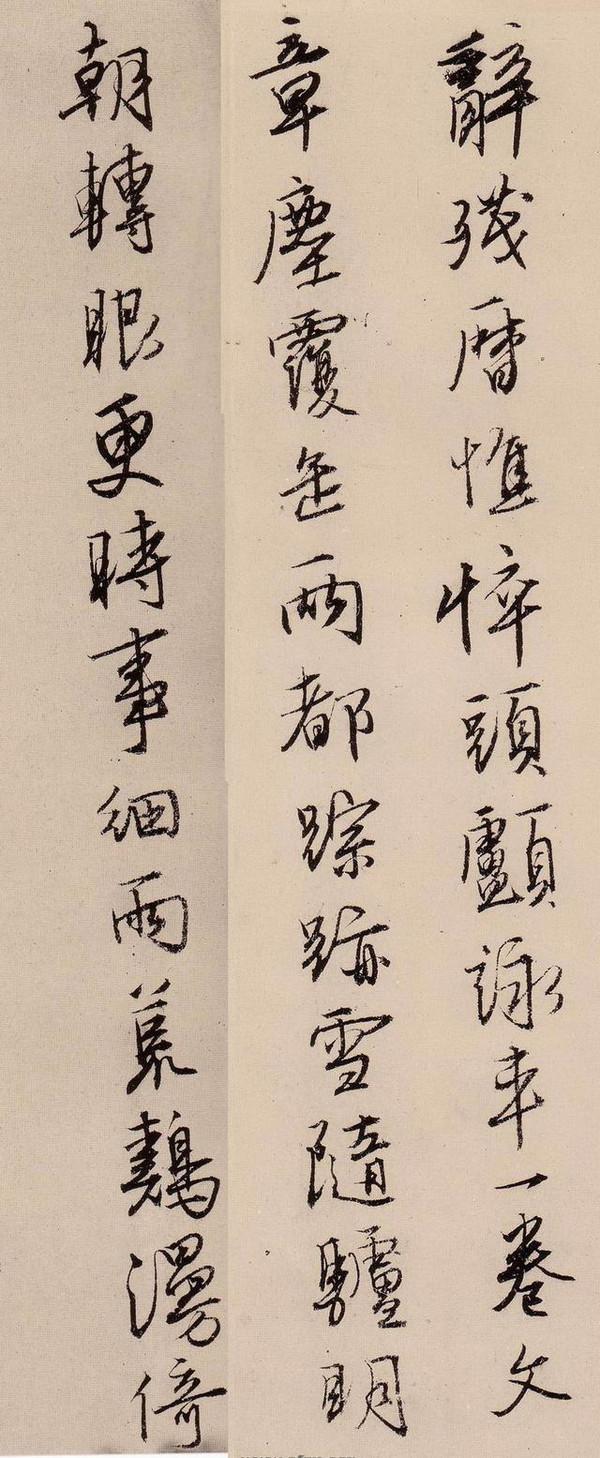 辭殘曆憔悴頭顱詠一卷文
章塵覆缶兩都踪跡雪隨驢明
朝轉眼更時事細雨荒鷄漫倚